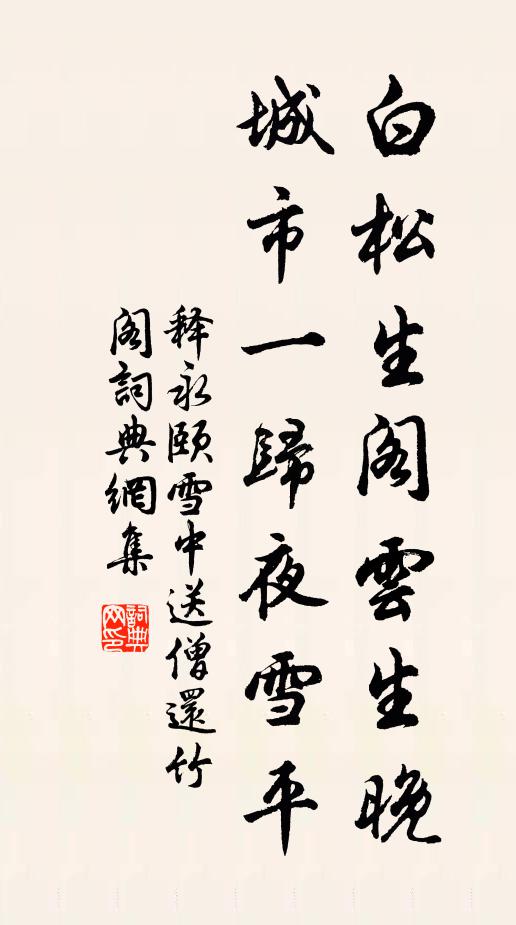 白松生阁雲生晚
城市一歸夜雪平
释永颐雪中送僧還竹
阁詞典網集
詞典
网印